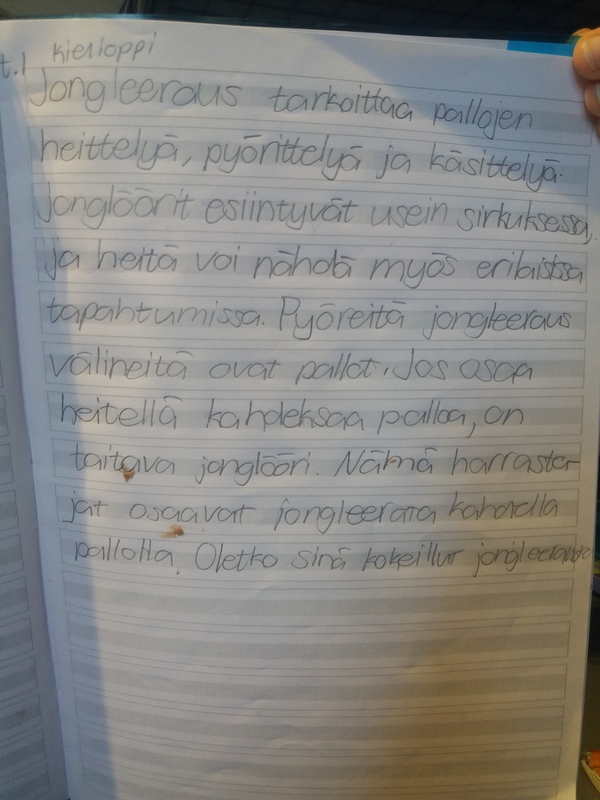 t.1 Kielioppi
Jongleeraus tarkoittaa pallojen
heittelyä, pyörittelyä ja käsittelyä.
Jonglöörit esiintyvät usein sirkuksessa,
ja heitä voi nähdä myös erilaisissa
tapahtumissa. Pyöreitä jongleeraus
välineitä ovat pallot. Jos osaa
heitellä kahdeksaa palloa, on
taitava jonglööri. Nämä harrasta-
jat osaavat jongleerata kahdella
pallolla. Oletko sinä kokeillut jongleerausta